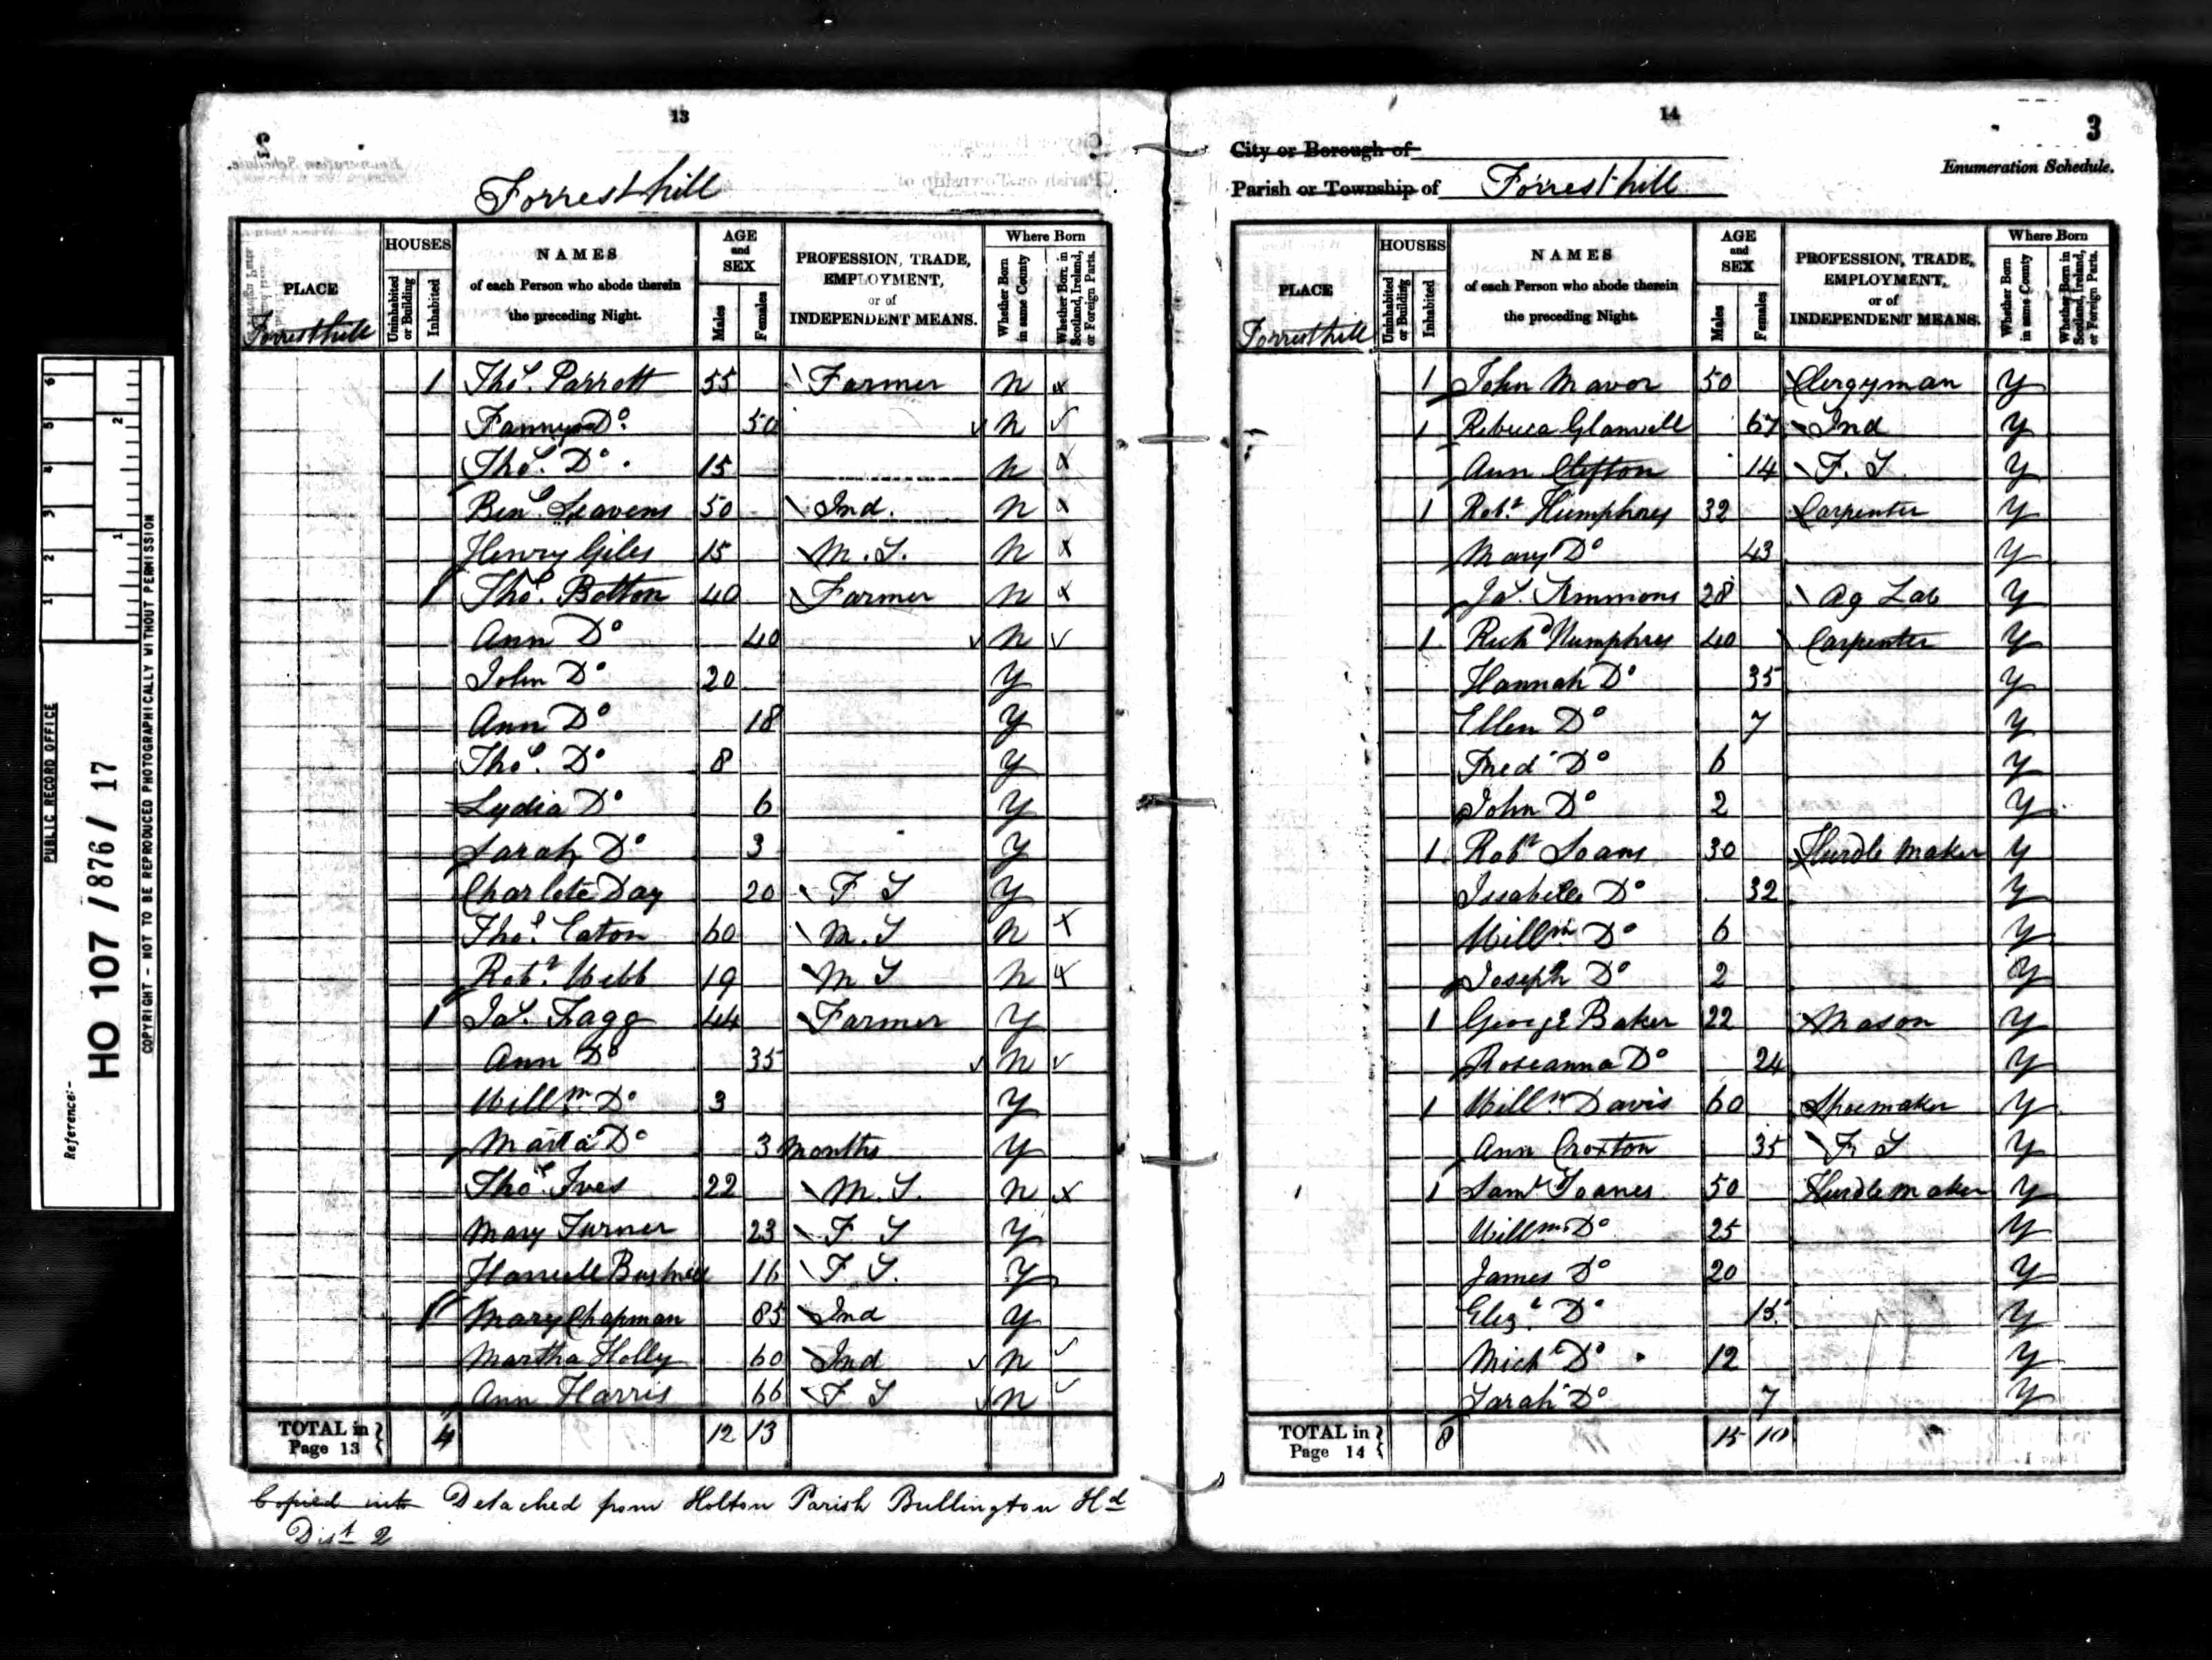 PUBLIC RECORD OFFICE
Reference:-
HO 107 / 876 / 17
COPYRIGHT - NOT TO BE REPRODUCED PHOTOGRAPHICALLY WITHOUT PERMISSION
1 2 3 4 5 6
1 2
13
2
Forresthill
PLACE
HOUSES
Uninhabited or Building
Inhabited
NAMES
of each Person who abode therein
the preceding Night.
AGE
and
SEX
Males
Females
PROFESSION, TRADE,
EMPLOYMENT,
or of
INDEPENDENT MEANS.
Where Born
Whether Born in same County
Whether Born in Scotland, Ireland, or Foreign Parts.
Forresthill
1 Thos. Parrott 55 Farmer N
Fanny Do. 50 N
Thos. Do. 15 N
Benj. Leavens 50 Ind. N
Henry Giles 15 M.S. N
1 Thos. Botton 40 Farmer N
Ann Do 40 N
John Do 20 Y
Ann Do 18 Y
Thos. Do 8 Y
Lydia Do 6 Y
Sarah Do 3 Y
Charlote Day 20 F S Y
Thos. Eaton 60 M.S N
Robt. Webb 19 M S N
1 Jas. Fagg 44 Farmer Y
Ann Do 35 N
Willm. Do 3 Y
Do 3 months Y
Thos. Ives 22 M.S. N
Mary Turner 23 F S Y
16 F.S. Y
1 Mary Chapman 85 Ind Y
Martha Holly 60 Ind N
Ann Harris 66 F S N
TOTAL in Page 13 4 12 13
Copied into Detached from Holton Parish Bullington Hd
Dist 2
14
3
City or Borough of
Enumeration Schedule.
Parish or Township of Forresthill
PLACE
HOUSES
Uninhabited or Building
Inhabited
NAMES
of each Person who abode therein
the preceding Night.
AGE
and
SEX
Males
Females
PROFESSION, TRADE,
EMPLOYMENT,
or of
INDEPENDENT MEANS.
Where Born
Whether Born in same County
Whether Born in Scotland, Ireland, or Foreign Parts.
Forresthill
1 John Mavor 50 Clergyman Y
1 Rebecca Glanvill 67 Ind Y
Ann Clifton 14 F.S. Y
1 Robt. Humphres 32 Carpenter Y
Mary Do 43 Y
Jas. Simmons 28 Ag Lab Y
1 Richd Humphres 40 Carpenter Y
Hannah Do 35 Y
Ellen Do 7 Y
Fred Do 6 Y
John Do 2 Y
1 Robt Soans 30 Hurdle maker Y
Issabella Do 32 Y
Willm Do 6 Y
Joseph Do 2 Y
1 George Baker 22 Mason Y
Roseanna Do 24 Y
1 Willm Davis 60 Shoemaker Y
Ann Croxton 35 F. S Y
1 Saml Soanes 50 Hurdle maker Y
Willm Do 25 Y
James Do 20 Y
Eliz. Do 15 Y
Michl Do 12 Y
Sarah Do 7 Y
TOTAL in Page 14 8 15 10